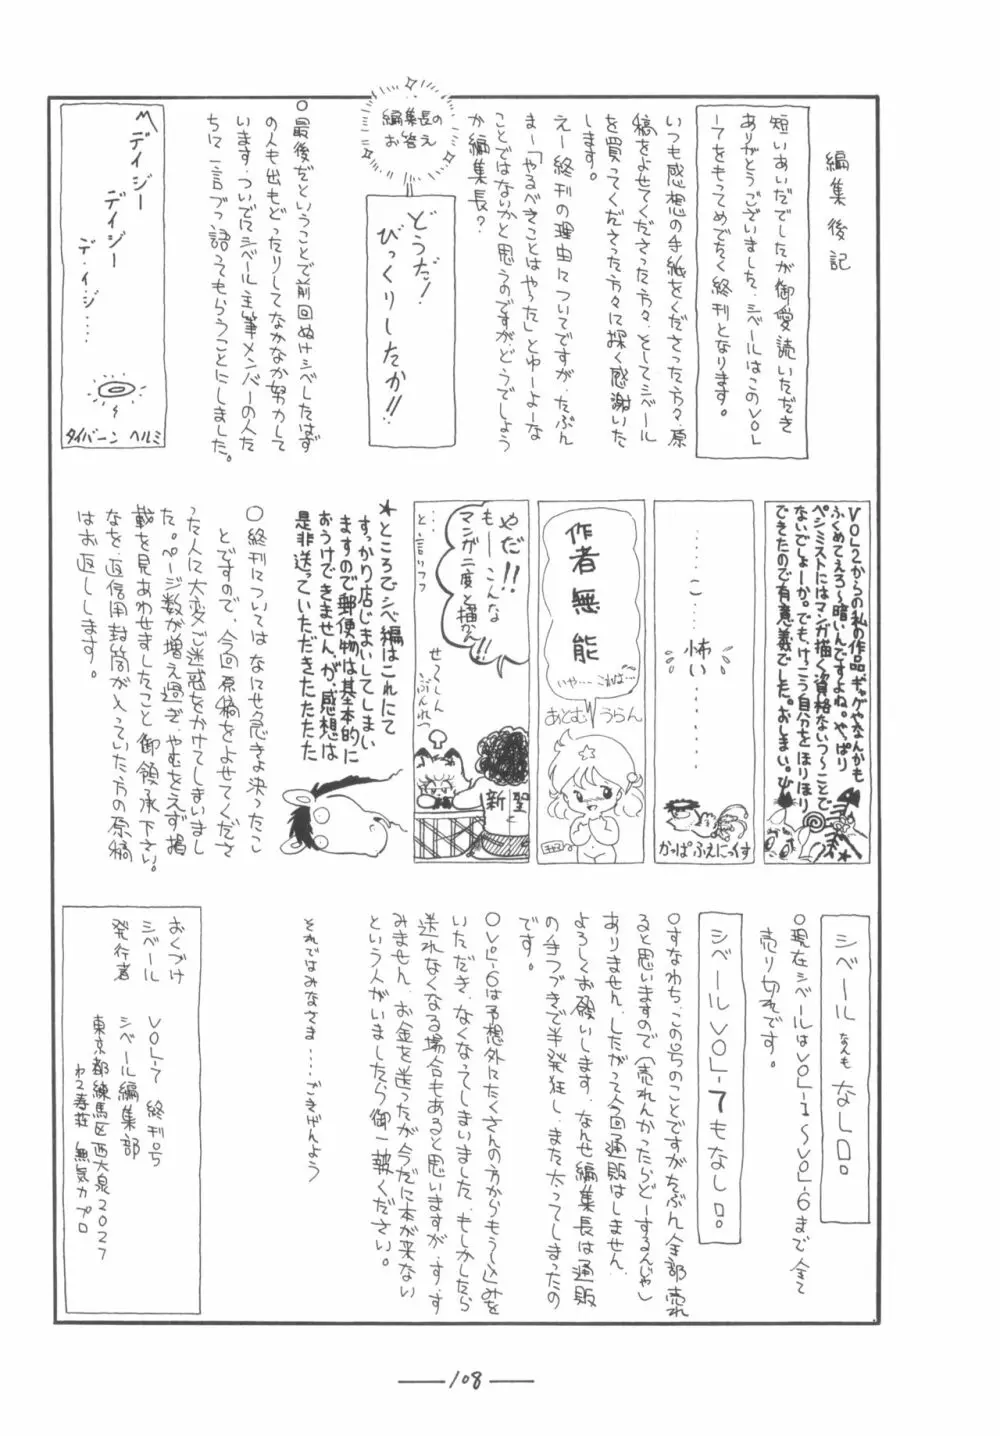 編集後記
短いあいだでしたが御愛読いただき
ありがとうございました、シベールはこのVOL
ーてをもってめでたく終刊となります。
いつも感想の手紙をくださった方々、原
稿をよせてくださった方々、そしてシベール
を買ってくださった方々に深く感謝いた
します。
えー終刊の理由についてですが、たぶん
まー「やるべきことはやった」とゆーよーな
ことではないかと思うのですが、どうでしょう
か編集長?
編集長の
お答え
どうだ!
びっくりしたか!!
○最後だということで前回ぬけシベしたはず
の人も出もどったりしてなかなか努力して
います。ついでにシベール主筆メンバーの人た
ちに一言づつ語ってもらうことにしました。
デイジー
デイジー
デ・イ・ジ・・・・
タイバーン ヘルミ
VOL2からの私の作品 ギャグやなんかも
ふくめてえろ〜暗いんですよね。やっぱり
ペシミストにはマンガ描く資格ないつ〜ことで
ないでしょーか。でも、けっこう自分をほりほり
できたので有意義でした。おしまい。
・・・・・こ、
怖い・・・・・・
かっぱふぇにっくす
作者無能
いや…これは…
あとむ うらん
やだ!!
も――こんな
マンガ二度と描かん!!
・・・・と、言いつつ
せーしん
ぶんれつ
新聖
★ところでシベ編はこれにて
すっかり店じまいしてしまい
ますので郵便物は基本的に
おうけできません、が、感想は
是非送っていただきたたたた
○終刊についてはなにせ急きょ決ったこ
とですので、今回原稿をよせてくださ
った人に大変ご迷惑をかけてしまいまし
た。ページ数が増え過ぎ、やむをえず掲
載を見あわせましたこと御領承下さい。
なを、返信用封筒が入っていた方の原稿
はお返しします。
シベールなんもなし□。
○現在シベールはVOL-1〜VOL-6まで全て
売り切れです。
シベールVOL-7もなし□。
○すなわち、この号のことですがたぶん全部売れ
ると思いますので(売れんかったらどーするんじゃ)
ありません、したがって今回通販はしません、
よろしくお願いします、なんせ編集長は通販
の手つづきで半発狂し、また太ってしまったの
です。
○VOL-6は予想外にたくさんの方からもうし込みを
いただき、なくなってしまいました、もしかしたら
送れなくなる場合もあると思いますが、す、す
みません、お金を送ったが今だに本が来ない
という人がいましたら御一報ください。
それではみなさま・・・・ごきげんよう
おくづけ
シベール VOL-7 終刊号
発行者 シベール編集部
東京都練馬区西大泉2027
わこ寿荘 無気力プロ
108